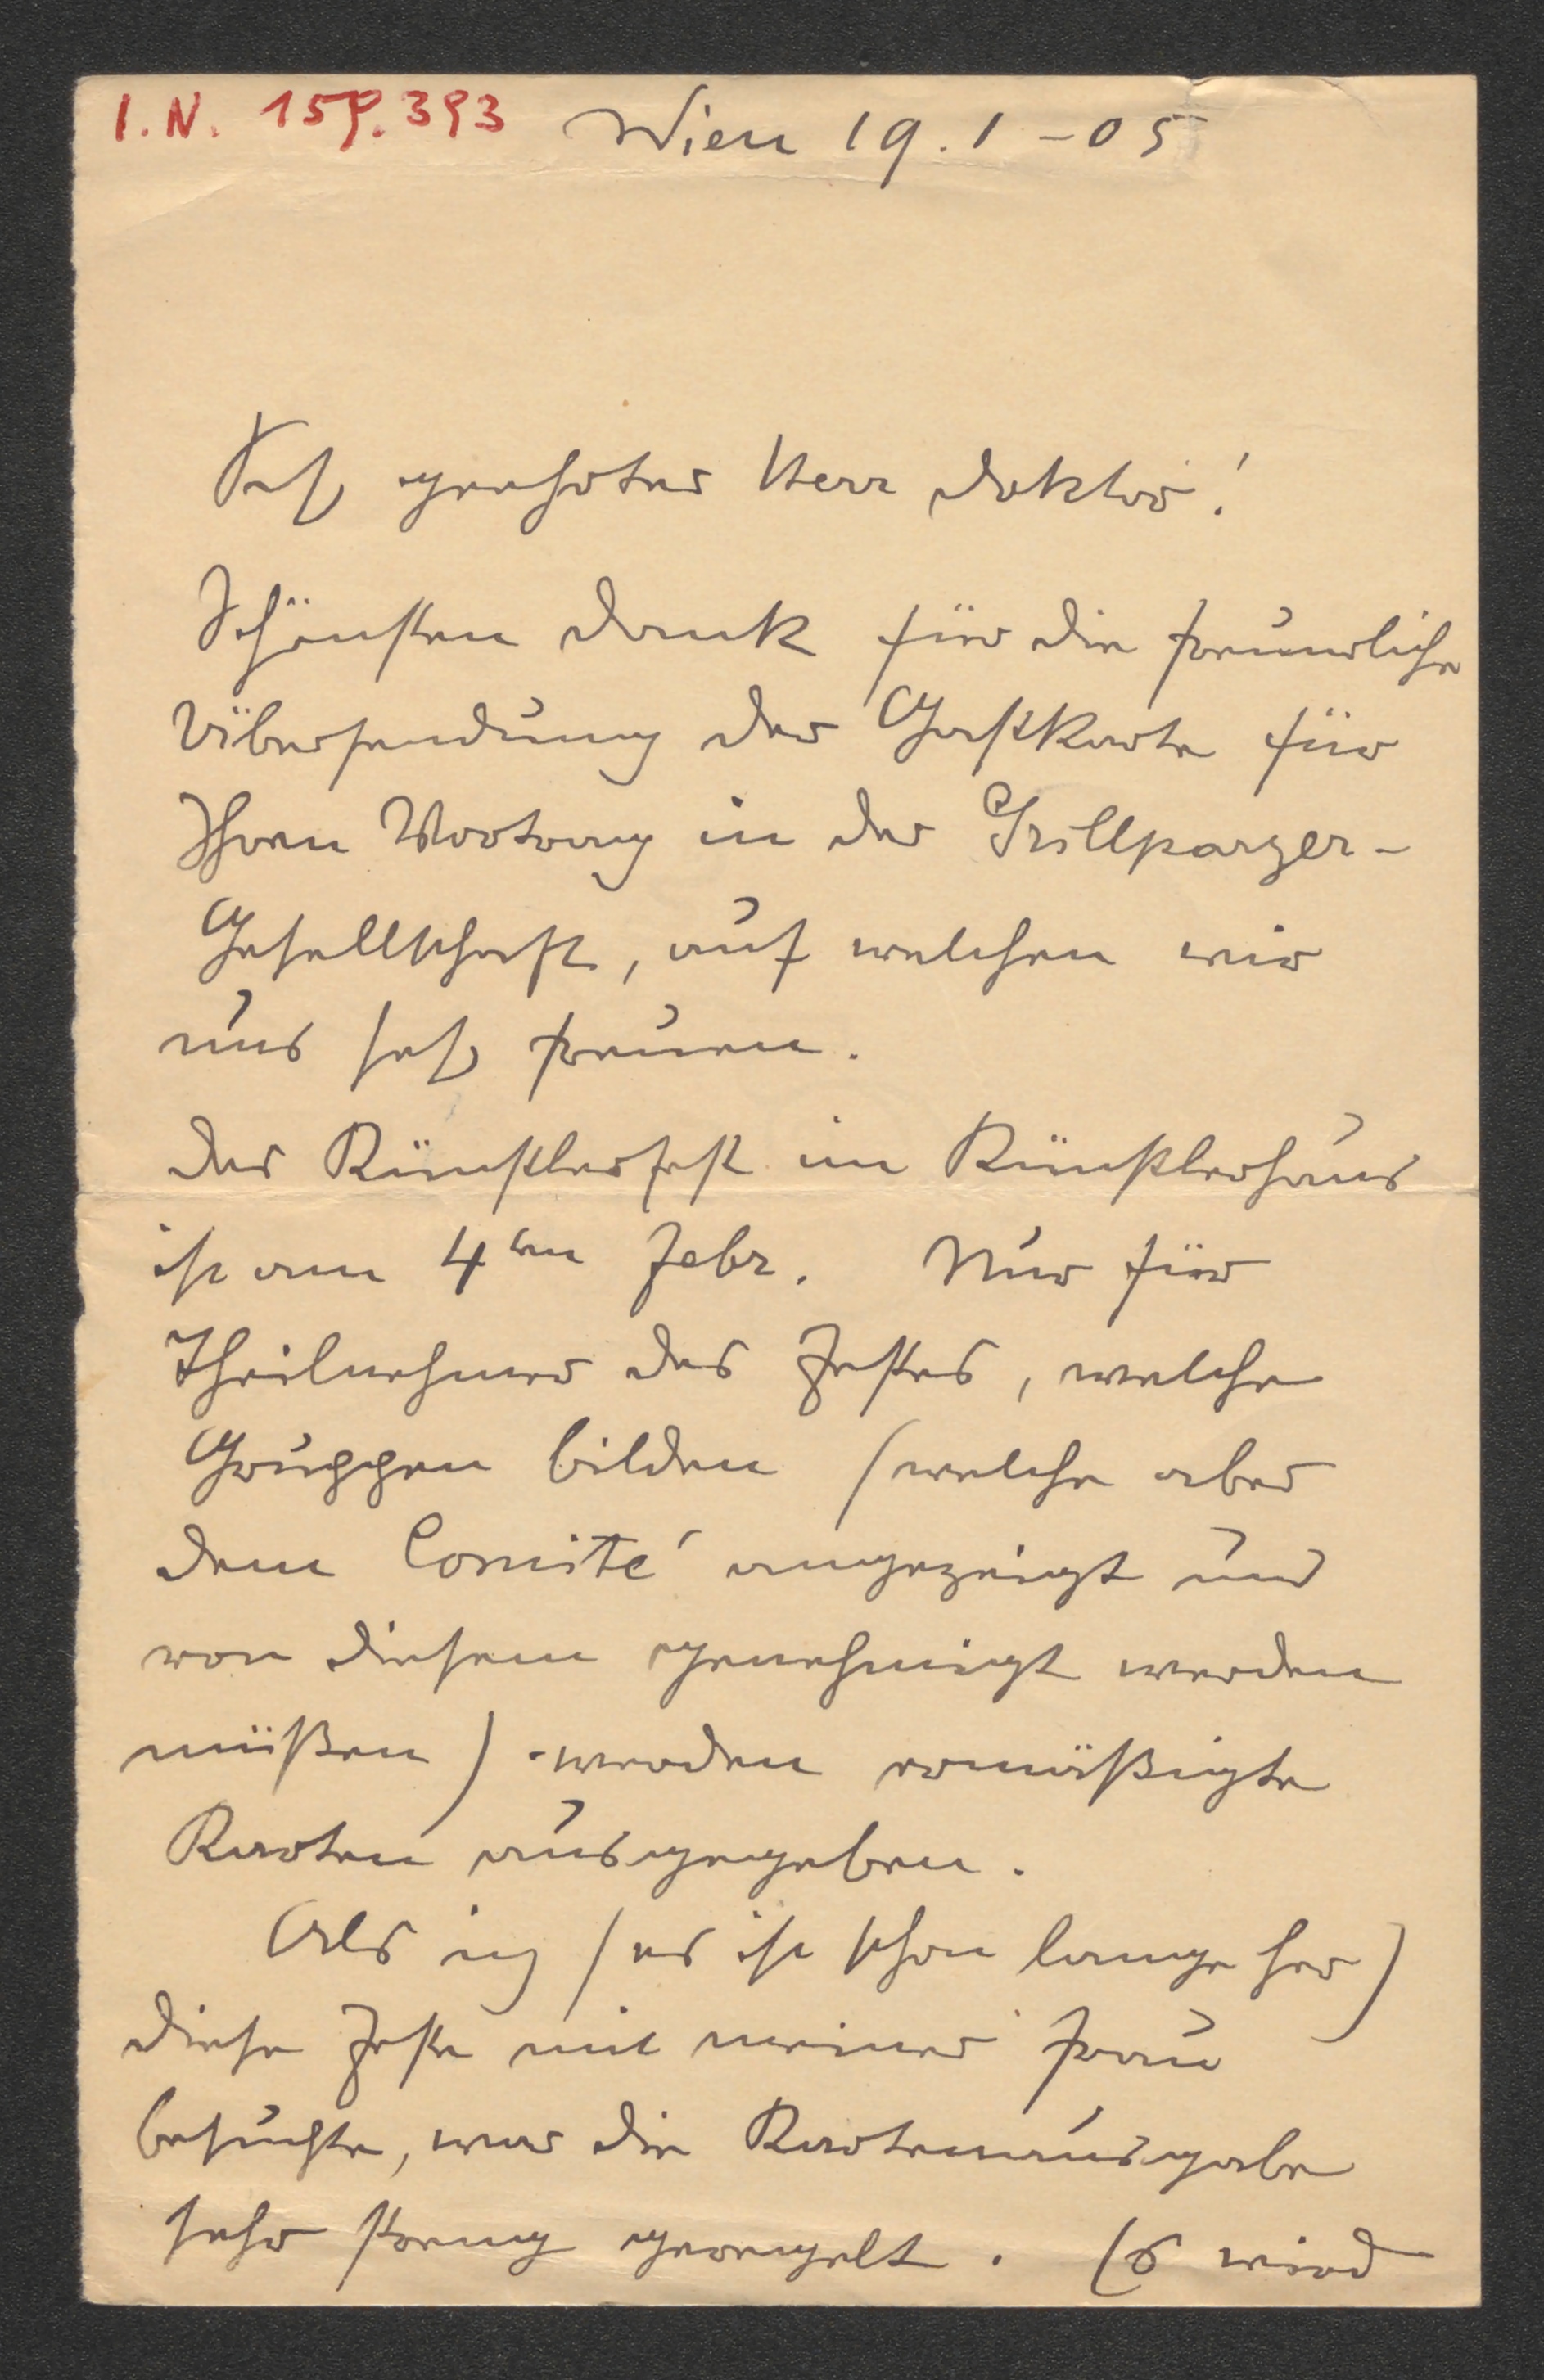 I.N. 159.393 Wien 19.1-05
Sehr geehrter Herr Doktor!
Schönsten Dank für die freundliche
Übersendung der Gastkarte für
Ihren Vortrag in der Grillparzer-
Gesellschaft, auf welchen wir
uns sehr freuen.
Das Künstlerfest im Künstlerhaus
ist am 4ten Febr. Nur für
Theilnehmer des Festes, welche
Gruppen bilden (welche aber
dem Comité angezeigt und
von diesem genehmigt werden
müßen) werden ermäßigte
Karten ausgegeben.
Als ich (es ist schon lange her)
diese Feste mit meiner Frau
besuchte, war die Kartenausgabe
sehr streng geregelt. Es wird